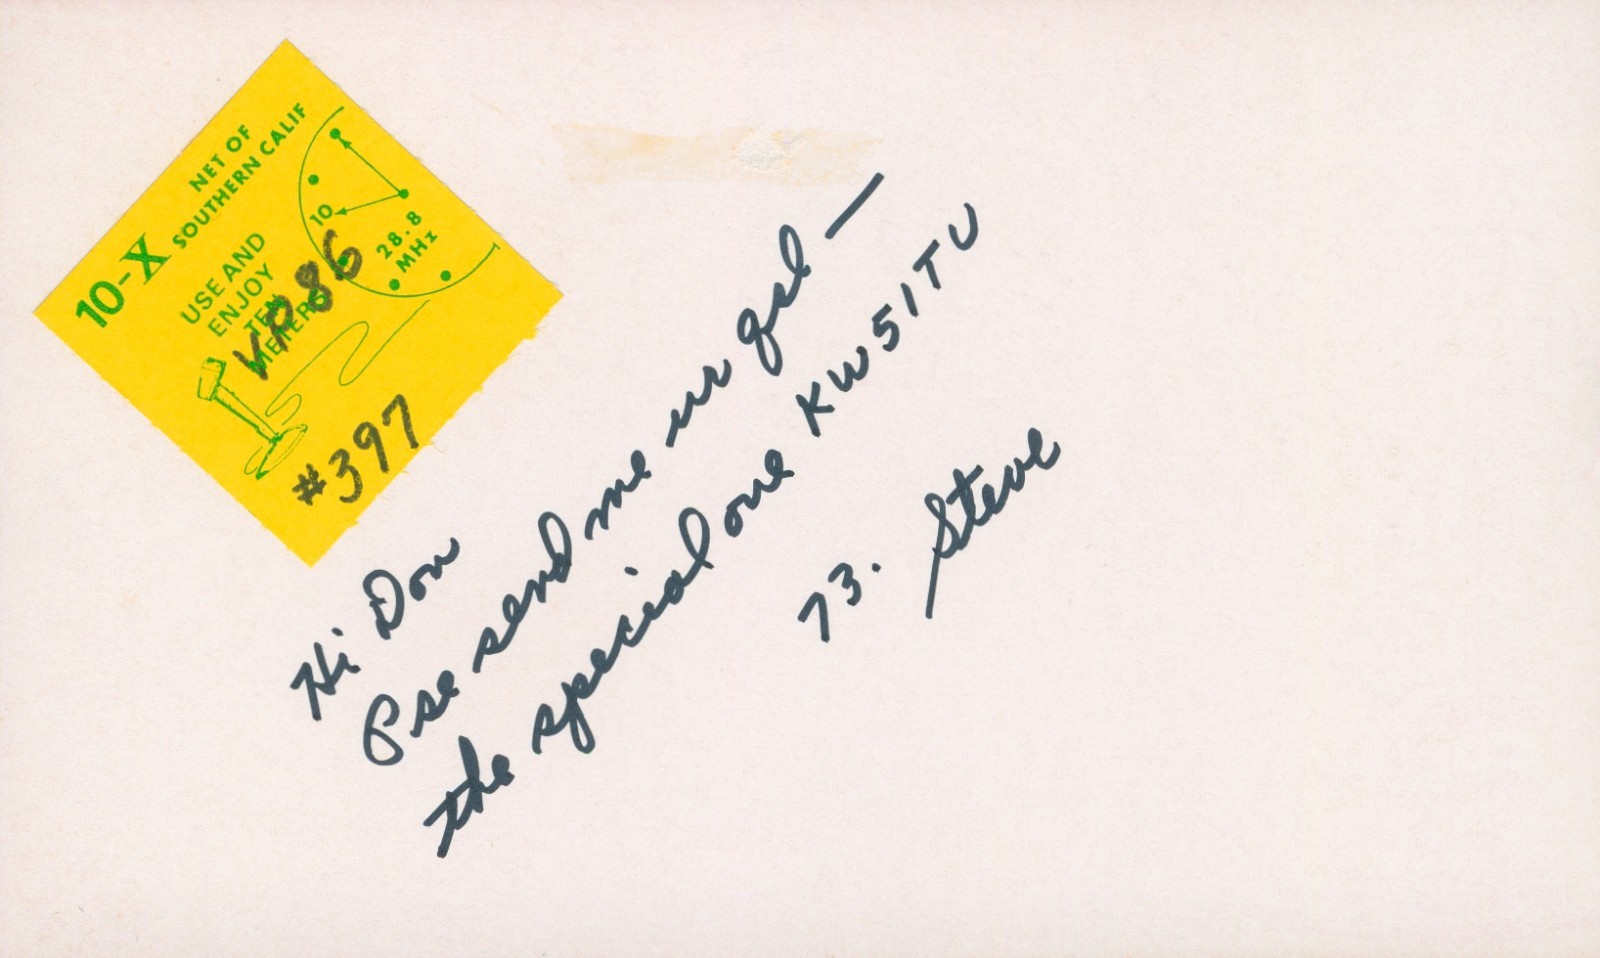 10-X
NET OF
SOUTHERN CALIF
USE AND
ENJOY
TEN
METERS
10
28.8
MHz
VP 86
#397
Hi Don
Pse send me ur qsl —
the special one KW51TU
73. Steve